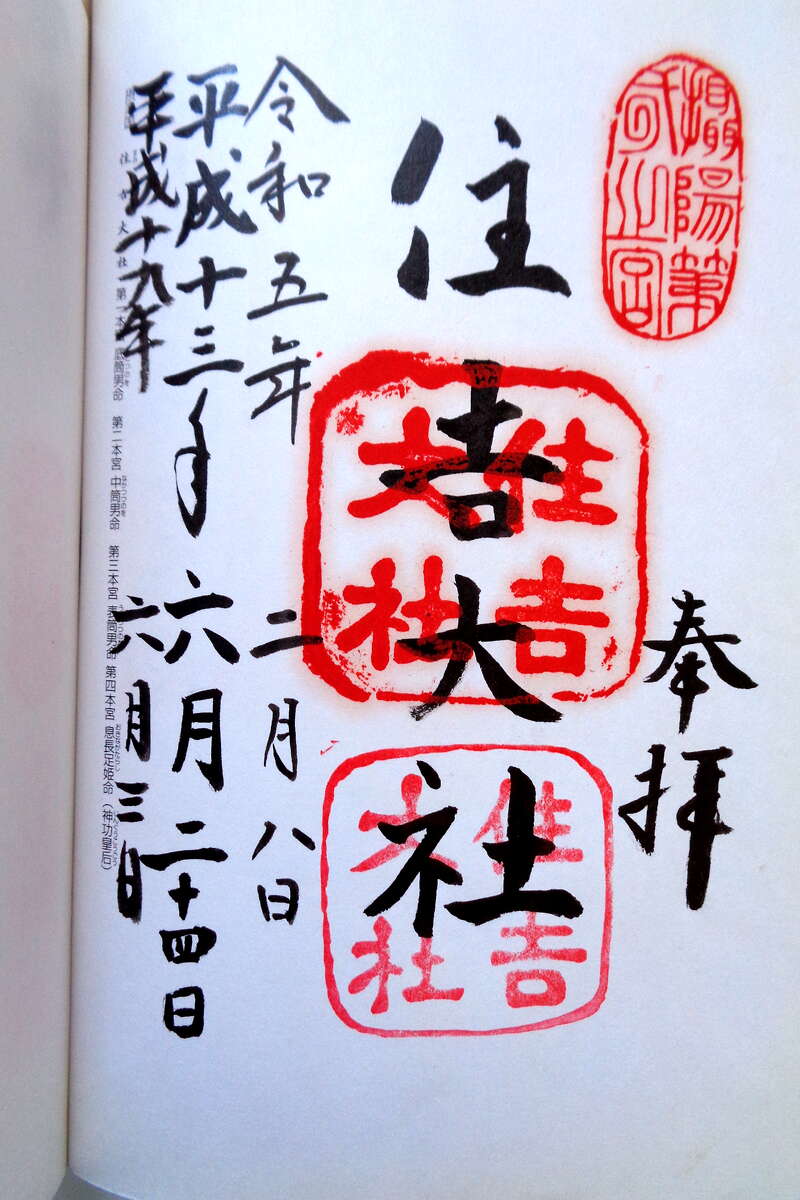 攝陽第
之宮
奉拝
住吉大社
住吉
大社
住吉
大社
令和五年 二月八日
平成十三年六月二十四日
平成十九年 六月三日
住吉大社 第一本宮 底筒男命 第二本宮 中筒男命 第三本宮 表筒男命 第四本宮 息長足姫命（神功皇后）